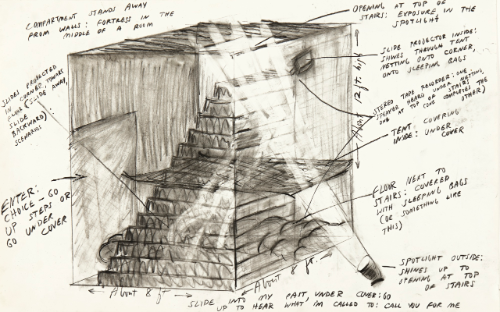 COMPARTMENT STANDS AWAY
FROM WALLS: FORTRESS IN THE
MIDDLE OF A ROOM
OPENING AT TOP OF
STAIRS: EXPOSURE IN THE
SPOTLIGHT
SLIDE PROJECTOR INSIDE:
SHINES THROUGH TENT
NETTING ONTO CORNER,
ONTO SLEEPING BAGS
STEREO TAPE RECORDER: ONE
SPEAKER HEARD UNDER STAIRS,
ONE AT TOP OF STAIRS
(ONE COMPLETES THE
OTHER)
About 12 ft. high
TENT COVERING
INSIDE: UNDER
COVER
SLIDES PROJECTED
IN CORNER TOWARDS
FLOOR (SLIDE AWAY,
SLIDE
BACKWARD)
SCENARIOS
ENTER:
CHOICE – GO
UP STEPS OR
GO UNDER
COVER
FLOOR NEXT TO
STAIRS: COVERED
WITH SLEEPING BAGS
(OR SOMETHING LIKE
THIS)
SPOTLIGHT OUTSIDE:
SHINES UP TO
OPENING AT TOP
OF STAIRS
About 8 ft.
About 8 ft.
SLIDE INTO MY PAST, UNDER COVER: GO
UP TO HEAR WHAT I'M CALLED TO: CALL YOU FOR ME